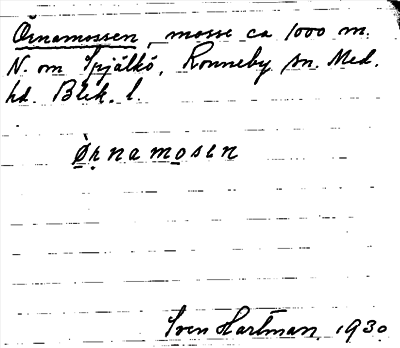 Örnamossen, mosse ca 1000 m.
N. om Spjälkö, Ronneby sn. Med.
hd. Blek. l.
Ö̀rnamosen
Sven Hartman. 1930